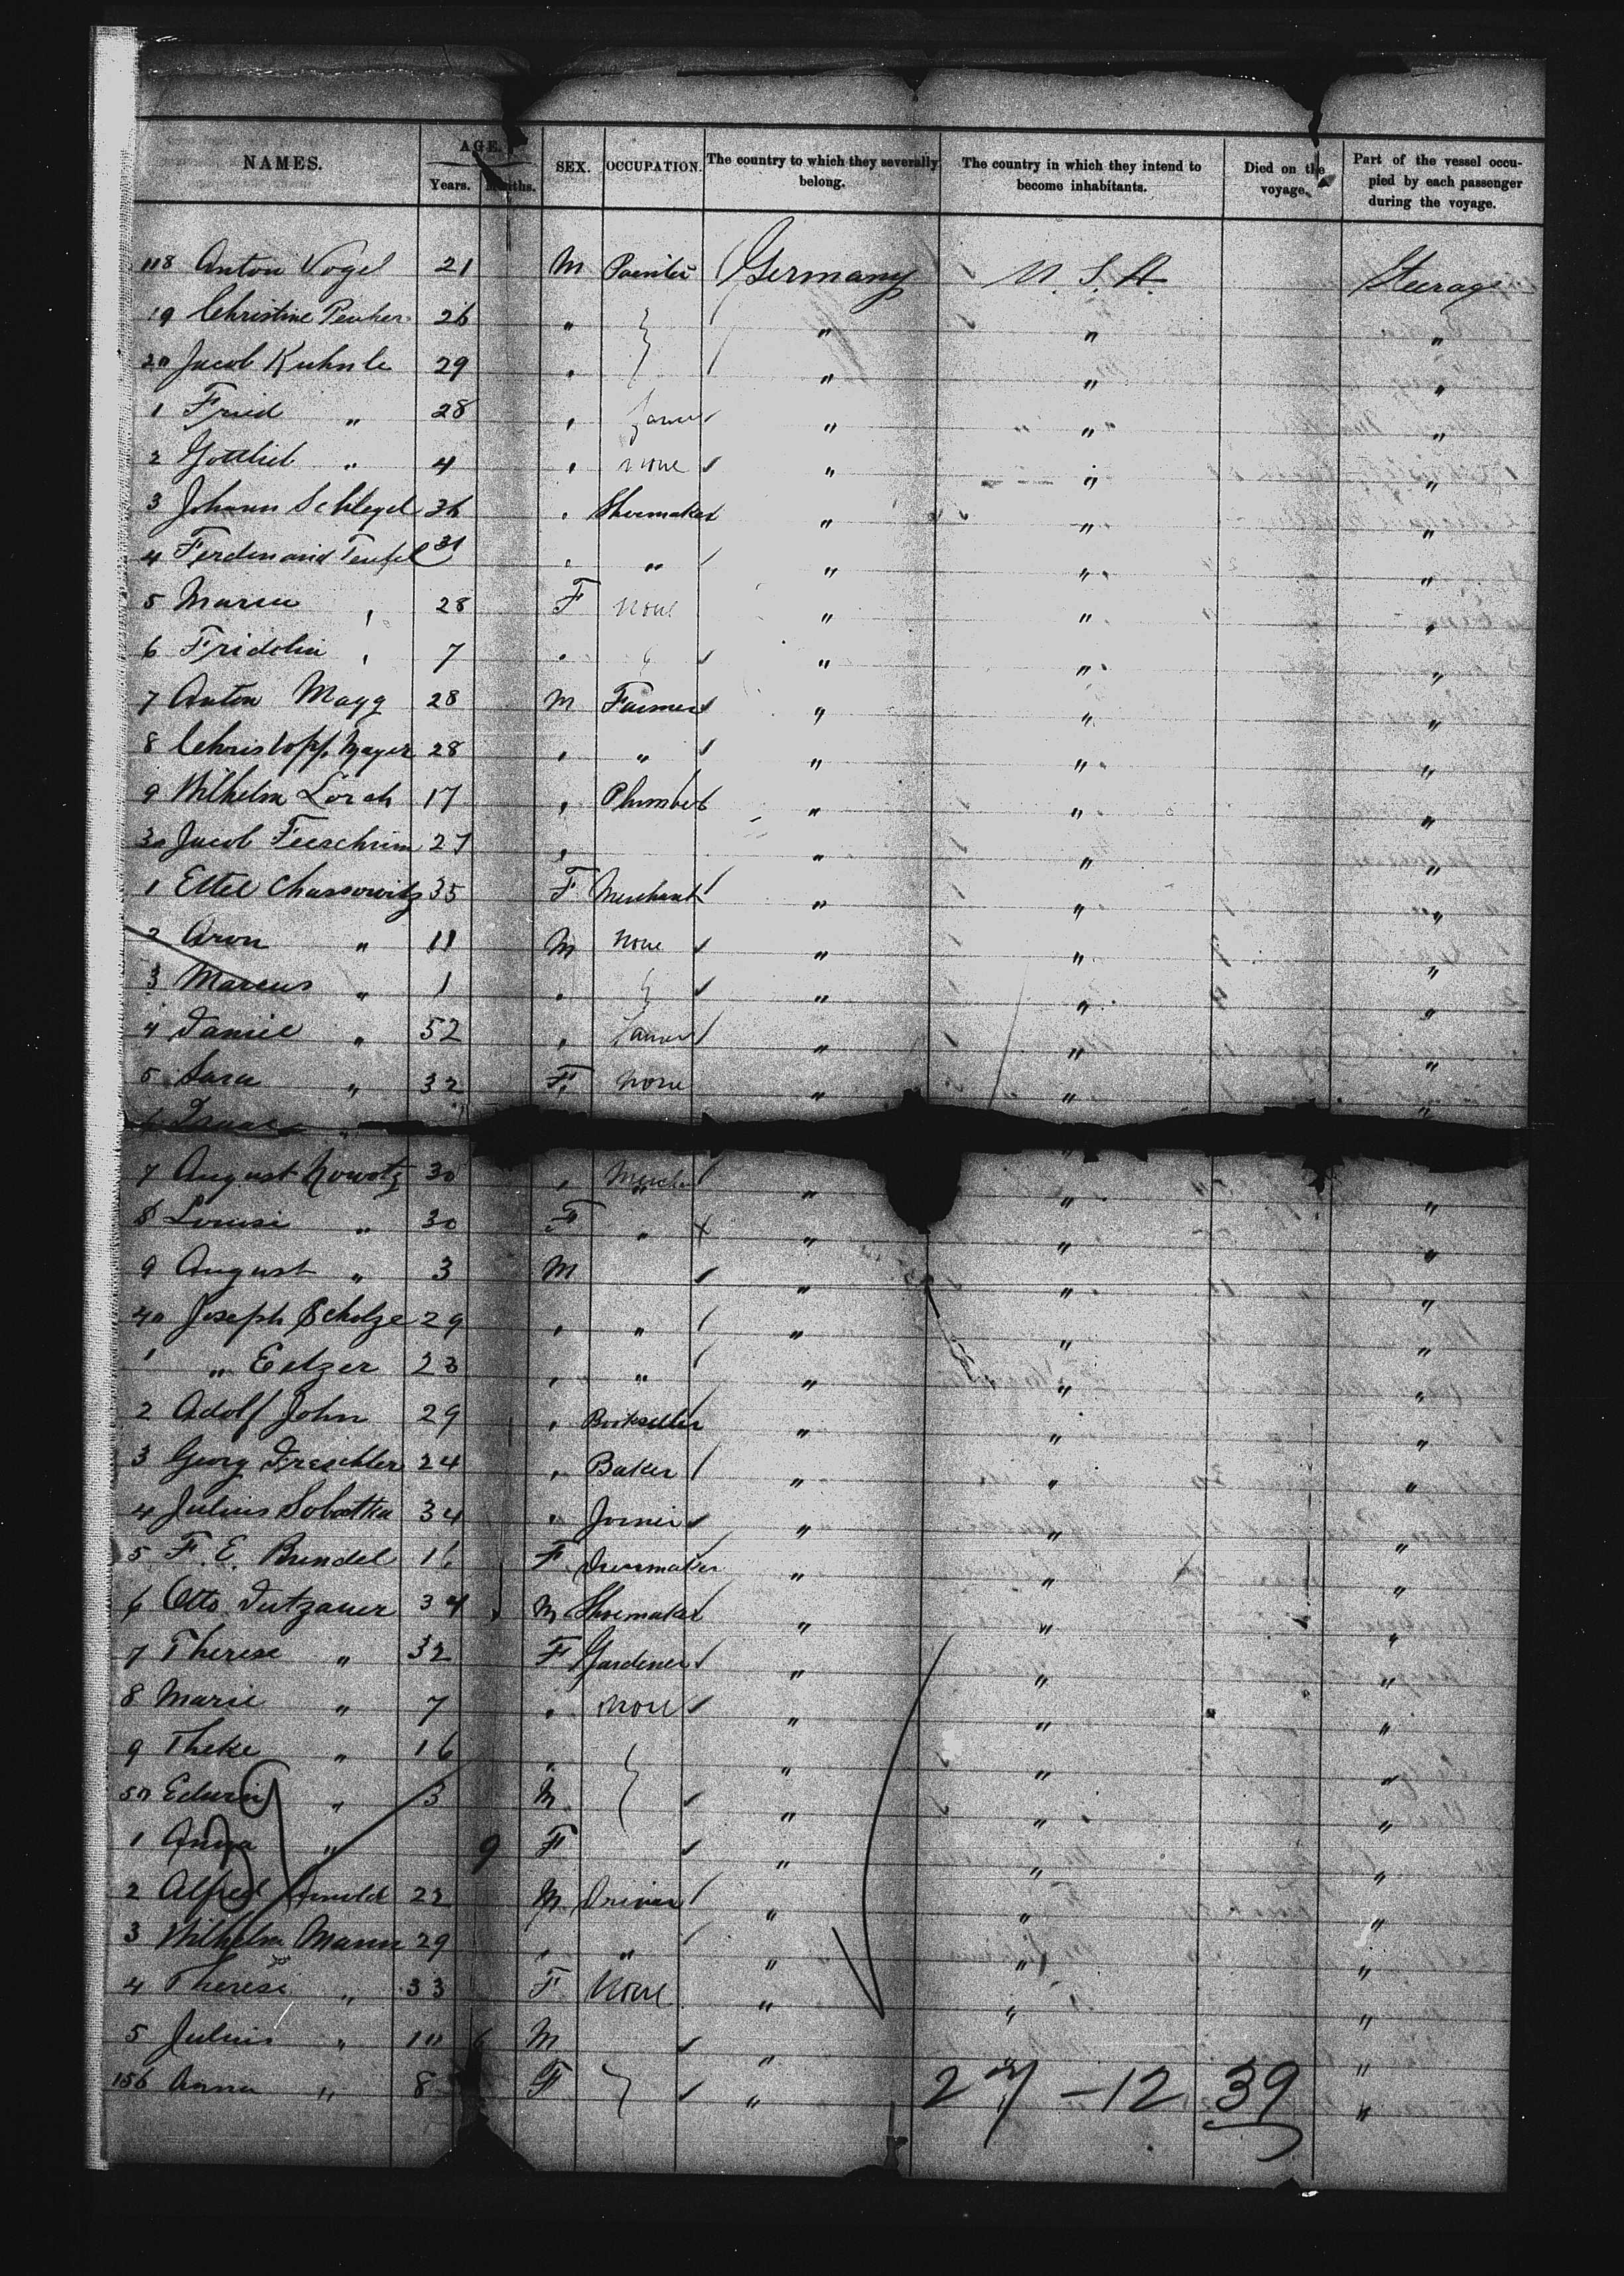 NAMES. AGE. Years. Months. SEX. OCCUPATION. The country to which they severally belong. The country in which they intend to become inhabitants. Died on the voyage. Part of the vessel occupied by each passenger during the voyage.
118 Anton Vogel 21 M Painter Germany U. S. A. Steerage
19 Christine 26 " " " "
20 Jacob Kuhnle 29 " " " "
1 Fried " 28 " " " "
2 Gottlieb " 4 " None " " "
3 Johann Schlegel 36 " Shoemaker " " "
4 Ferdinand Teufel 31 " " " " "
5 Maria " 28 F None " " "
6 Fridolin " 7 " " " " "
7 Anton Magg 28 M Farmer " " "
8 Christoph Mayer 28 " " " " "
9 Wilhelm Lorch 17 " Plumber " " "
30 Jacob 27 " " " "
1 Ettel Chassowitz 35 F Merchant " " "
2 Aron " 11 M None " " "
3 Marcus " 1 " " " "
4 Daniel " 52 " " " "
5 Sara " 32 F None " " "
6 Isaac "
7 August Nowotz 30 " " " "
8 Louise " 30 F " " " "
9 August " 3 M " " "
40 Joseph Scholze 29 " " " " "
1 " Eelzer 23 " " " " "
2 Adolf John 29 " Bookseller " " "
3 Georg Dreschler 24 " Baker " " "
4 Julius Sobottka 34 " Joiner " " "
5 F. E. Bundel 16 F Dressmaker " " "
6 Otto Dutzauer 34 M Shoemaker " " "
7 Therese " 32 F Gardener " " "
8 Marie " 7 " None " " "
9 Theke " 16 " " " "
50 Edwin " 3 M " " "
1 Anna " 9 F " " "
2 Alfred Arnold 22 M Driver " " "
3 Wilhelm Mann 29 " " " " "
4 Therese " 33 F None " " "
5 Julius " 10 M " " "
156 Anna " 8 F " " "
27 - 12 39